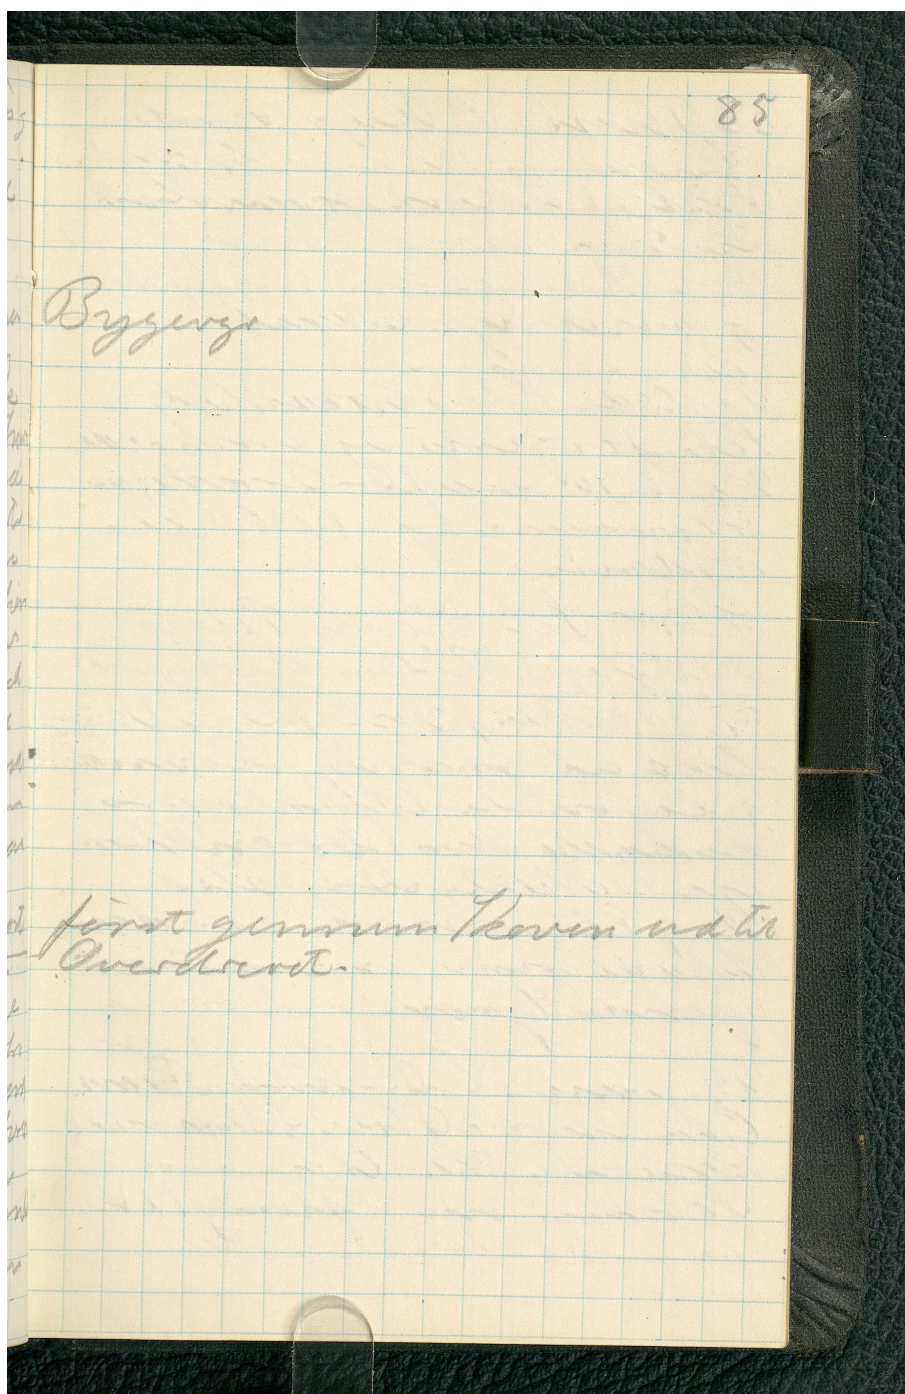 85
Byggevgs
først gennem Skoven ud til
Overdrevet.